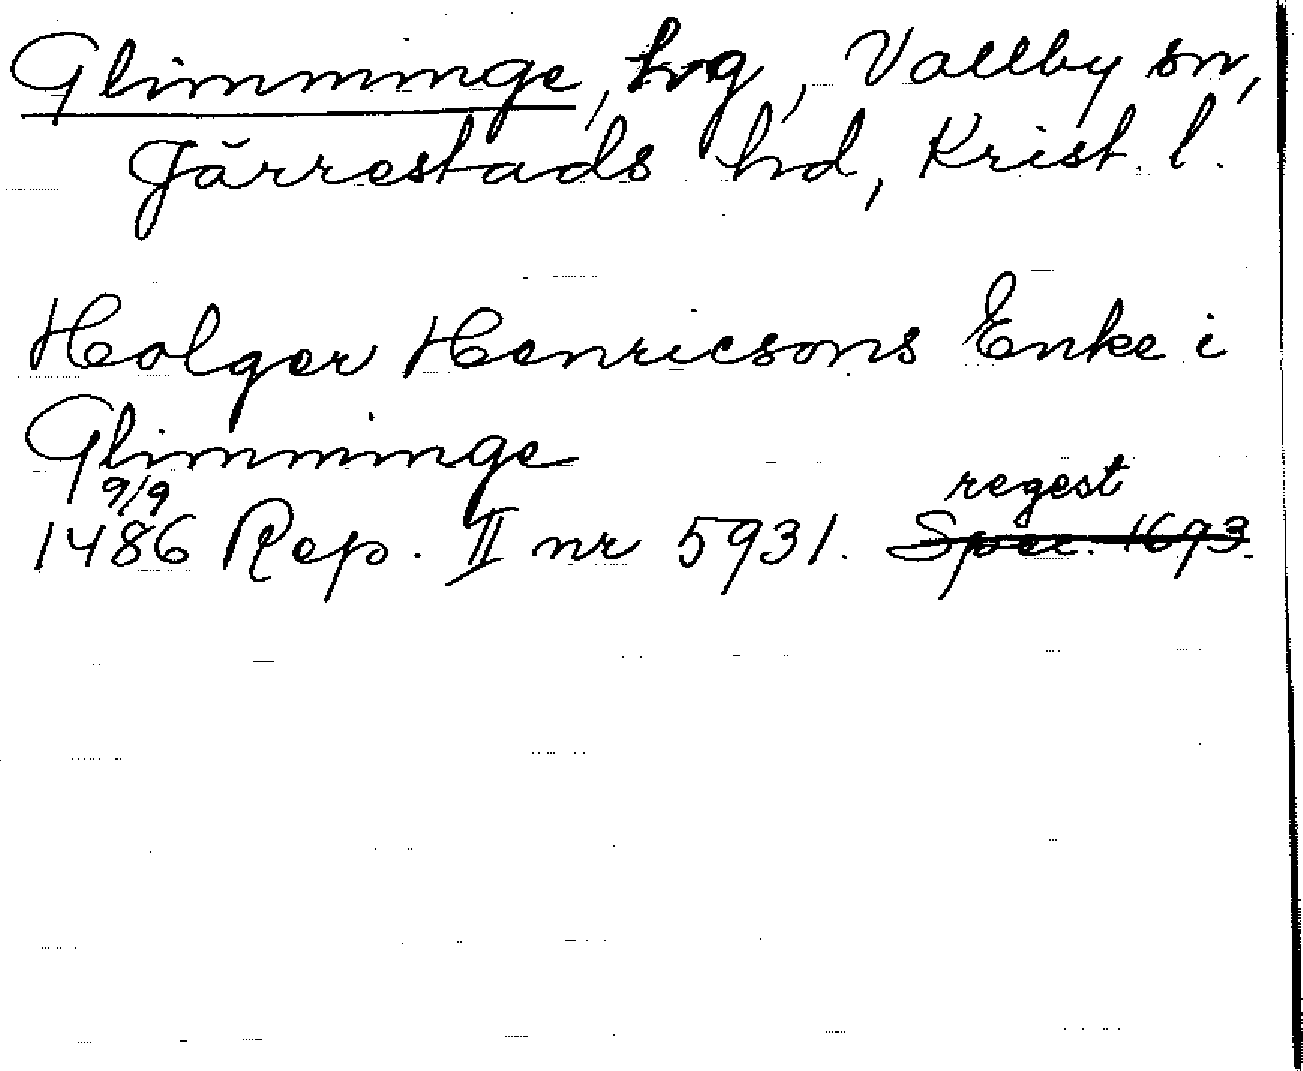 Glimminge, hrg, Vallby sn,
Järrestads hd, Krist. l.
Holger Henricsons Enke i
Glimminge
9/9
1486 Rep. II nr 5931. regest
Spec. 1693.